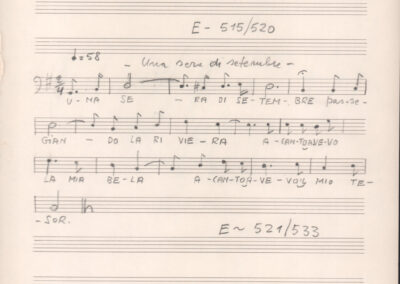 E - 515/520
♩=58
- Una sera di setembre -
U-NA SE - RA DI SE-TEM-BRE pas-se-
GIAN - DO LA RI VIE - RA A-CAN-TOAVE-VO
LA MIA BE-LA A-CAN-TOA-VE-VO IL MIO TE-
-SOR.
E ~ 521/533